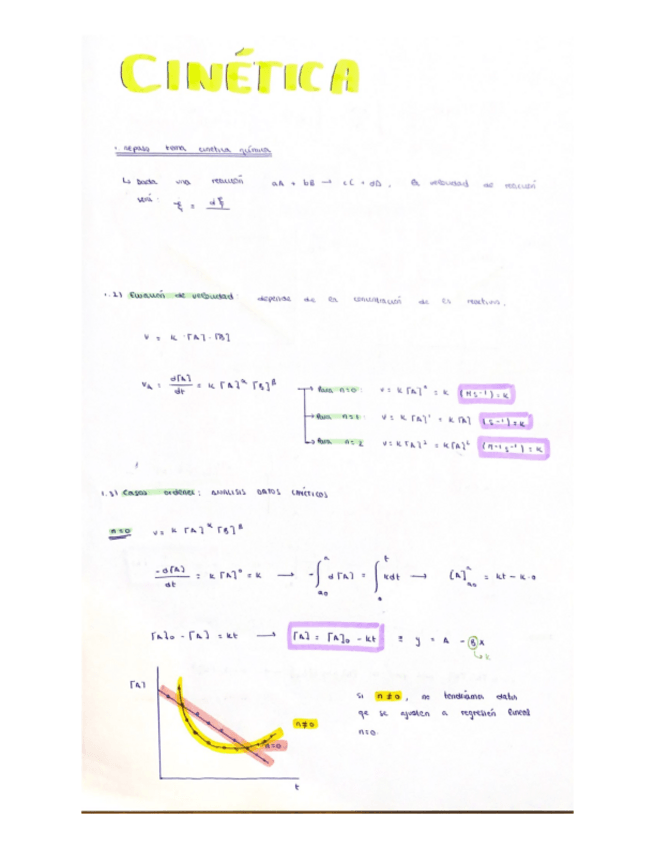 CINÉTICA
1. repaso tema cinética química
↳ Dada una reacción aA + bB → cC + dD, la velocidad de reacción
será: ξ = dξ
1.2) Ecuación de velocidad depende de la concentración de reactivo.
v = k · [A] · [B]
v_A = d[A]/dt = k [A]^α [B]^β
Para n=0: v = k [A]^0 = k (M s^-1) = k
Para n=1 v = k [A]^1 = k [A] (s^-1) = k
Para n=2 v = k [A]^2 = k [A]^2 (M^-1 s^-1) = k
1.3) Casos ordenes: ANÁLISIS DATOS CINÉTICOS
n=0 v = k [A]^α [B]^β
-d[A]/dt = k [A]^0 = k → -∫ d[A] = ∫ kdt → [A] = kt - k·0
[A]_0 - [A] = kt → [A] = [A]_0 - kt ≡ y = A - Bx
↳ k
[A]
n≠0
n=0
t
Si n≠0, no tendríamos datos
que se ajusten a regresión lineal
n=0.